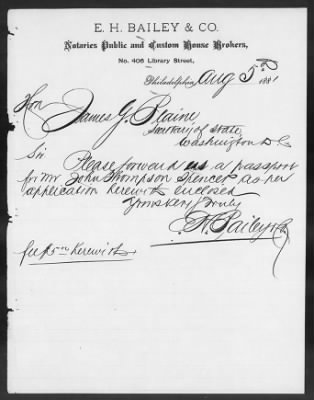 E. H. BAILEY & CO.
Notaries Public and Custom House Brokers,
No. 406 Library Street,
Philadelphia, Aug 5th 1881
Hon
James G. Blaine
Secretary of State
Washington D C
Sir
Please forward us a passport
for Mr John Thompson Spencer as per
application herewith enclosed
Yours Very Truly
E. H. Bailey & Co
fee $5 00 herewith